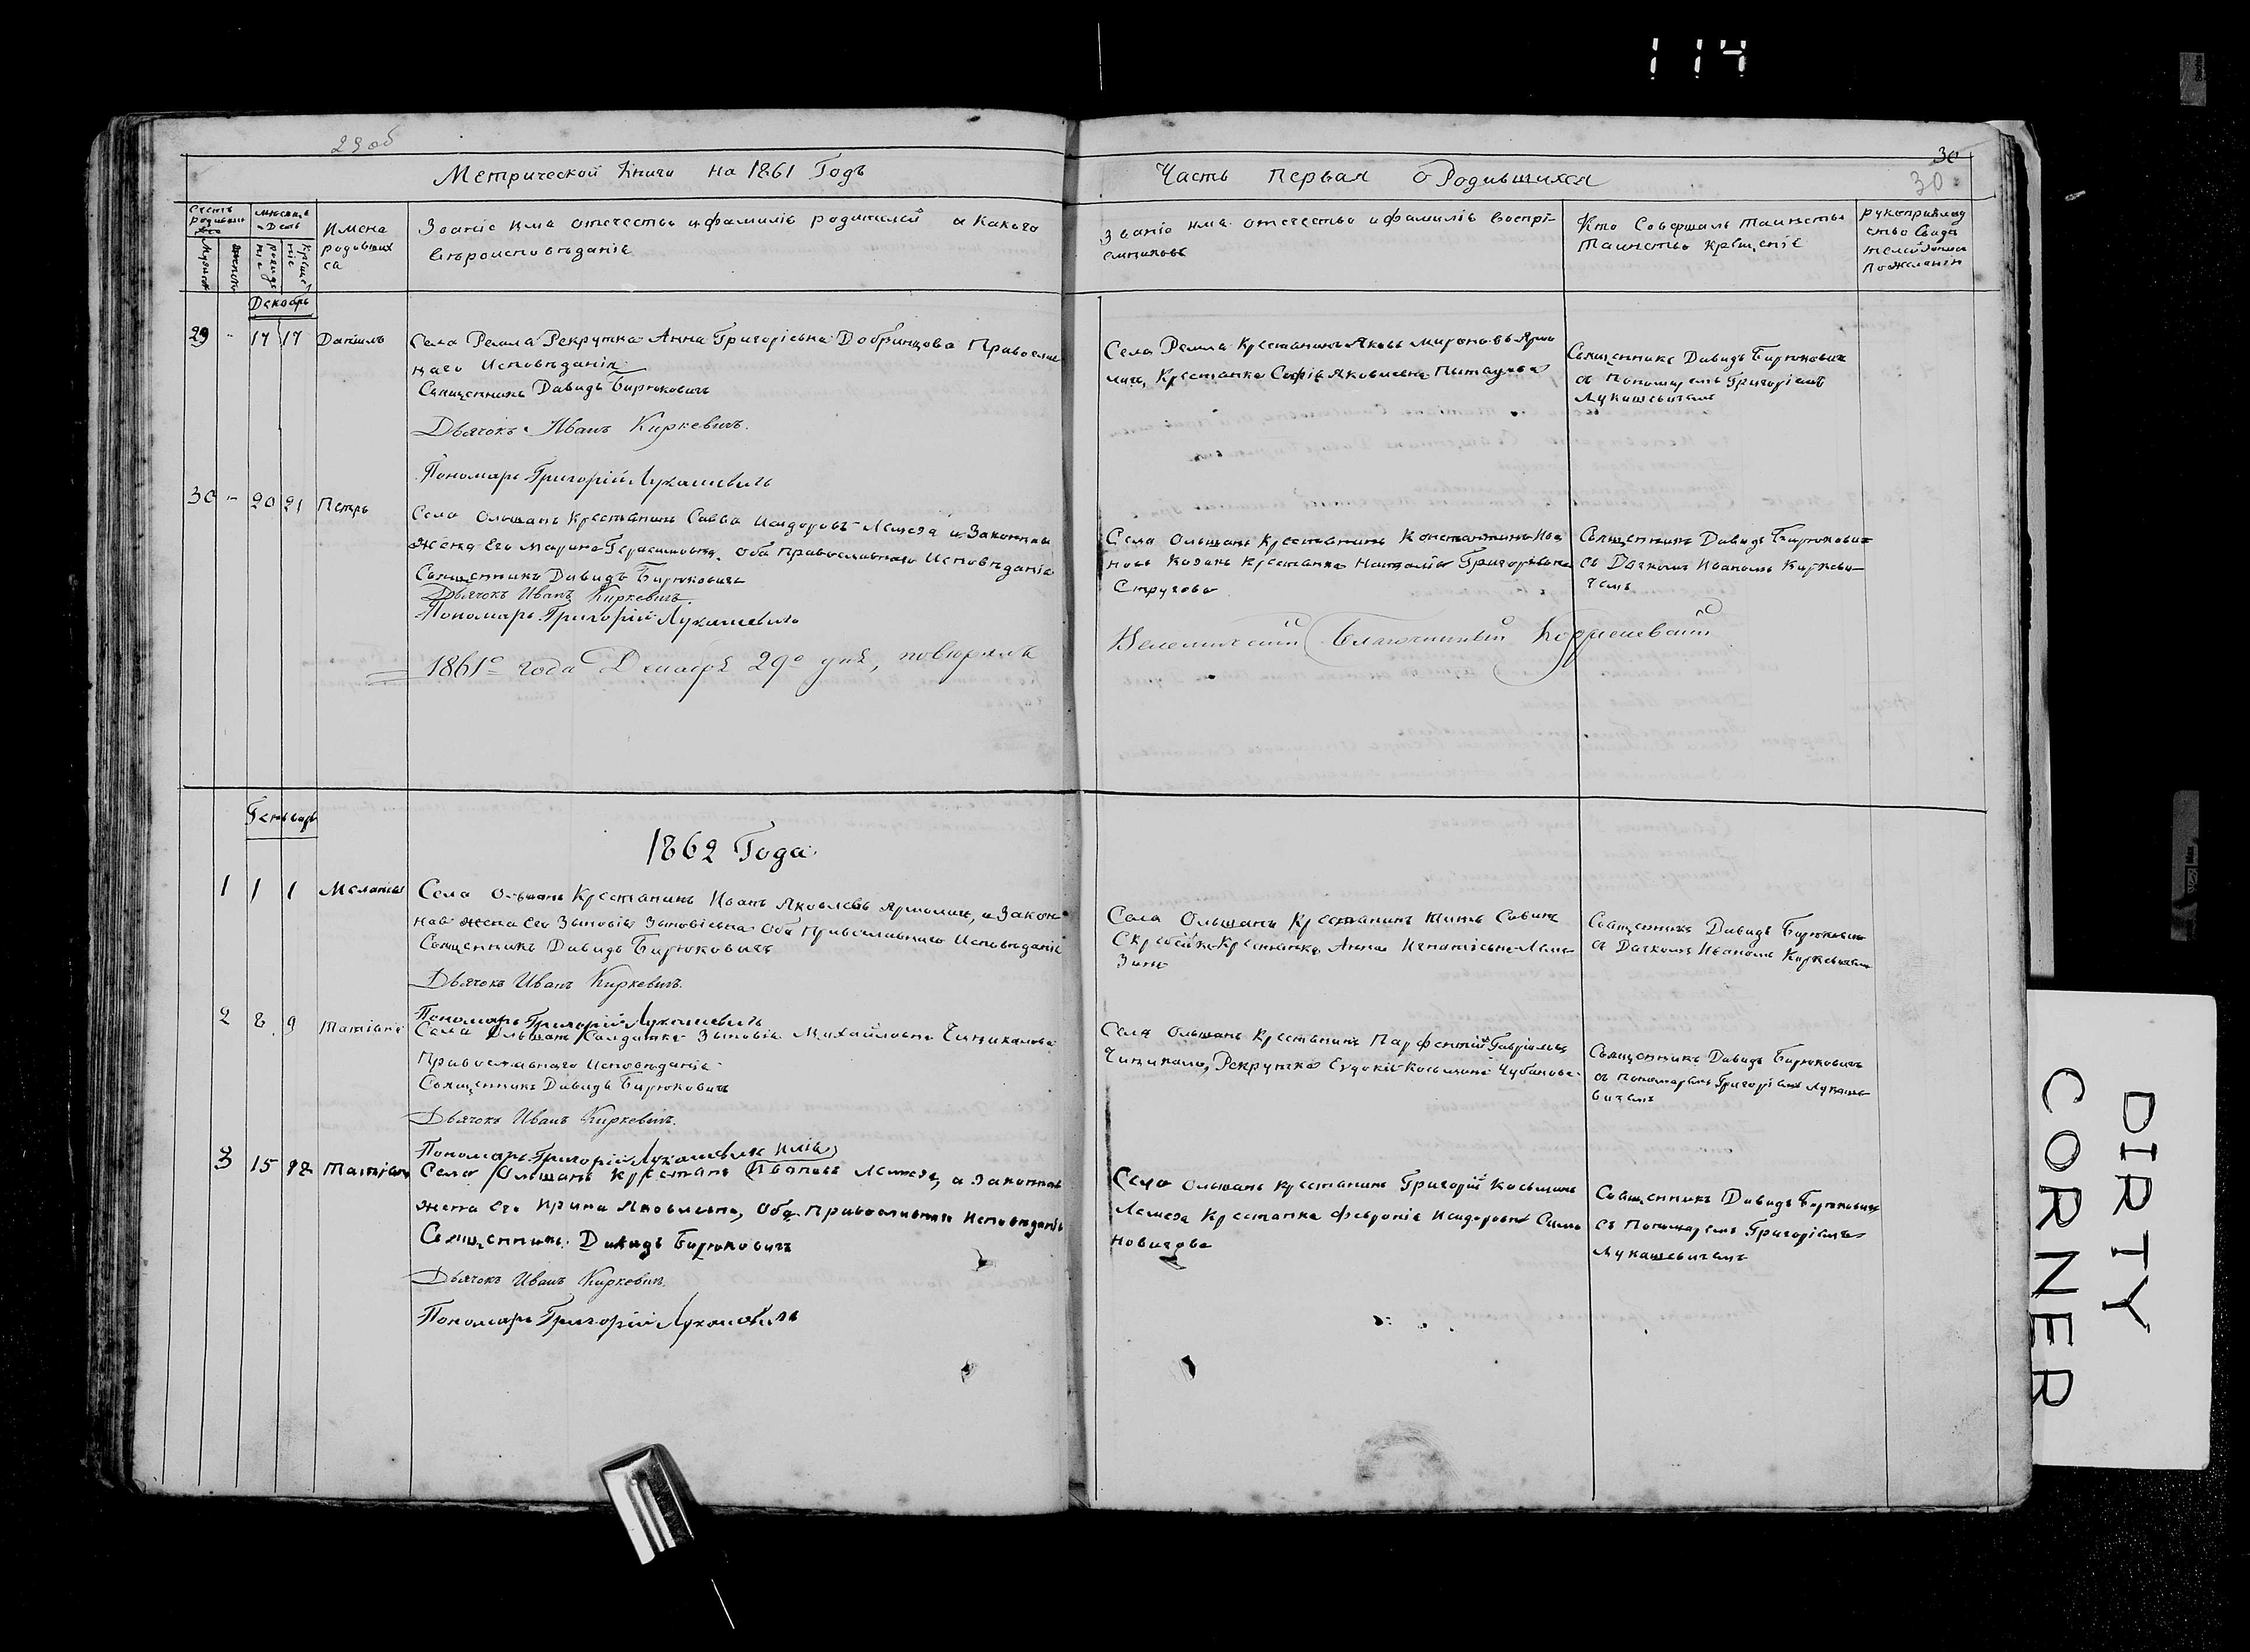 114
29 об
30
30
Метрической Книги на 1861 Годъ
Часть Первая о Родившихся
Мѣсяцъ и День
Имена родившихся
Званіе имя отечество и фамилія родителей и Какого
вѣроисповѣданія
Званіе имя отечество и фамилія воспрі-
емниковъ
Кто Совершалъ таинство
таинство Крещеніе
рукоприклад
ство Свидѣ
телей записи
по желанію
Декабрь
29 - 17 17 Даніилъ
Села Ремля Рекрутка Анна Григоріевна Добринцова Православ
наго Исповѣданія
Священникъ Давидъ Бирюковичъ
Дьячокъ Иванъ Киркевичъ.
Пономарь Григорій Лукашевичъ
Села Ремля Крестьянинъ Яковъ Мироновъ Ярмо
личъ, Крестьянка Софія Яковлевна
Священникъ Давидъ Бирюковичъ
съ Пономаремъ Григоріемъ
Лукашевичемъ
30 - 20 21 Петръ
Села Ольшанъ Крестьянинъ Савва Исидоровъ Лемеза и Законная
жена Его Марина Герасимовна Оба Православнаго Исповѣданія
Священникъ Давидъ Бирюковичъ
Дьячокъ Иванъ Киркевичъ.
Пономарь Григорій Лукашевичъ
Села Ольшанъ Крестьянинъ Константинъ Ива
новъ Казакъ Крестьянка Наталія Григорьевна
Стругова
Священникъ Давидъ Бирюковичъ
съ Дячкомъ Иваномъ Киркеви-
чемъ
1861го года Декабря 29го дня, повѣрялъ
Велемичскій Благочинный
Генварь
1862 Года
1 1 1 Меланія
Села Ольшанъ Крестьянинъ Иванъ Яковлевъ Ярмоличъ, и Закон-
ная жена его Зыновія Зыновіевна Оба Православнаго Исповѣданія
Священникъ Давидъ Бирюковичъ
Дьячокъ Иванъ Киркевичъ.
Пономарь Григорій Лукашевичъ
Села Ольшанъ Крестьянинъ Титъ Савинъ
Крестьянка Анна Игнатіевна Леме-
зина
Священникъ Давидъ Бирюковичъ
съ Дячкомъ Иваномъ Киркевичемъ
2 8 9 Татіана
Села Ольшанъ Солдатка Зыновія Михайловна Чиникалова
Православнаго Исповѣданія
Священникъ Давидъ Бирюковичъ
Дьячокъ Иванъ Киркевичъ.
Пономарь Григорій Лукашевичъ
Села Ольшанъ Крестьянинъ Парфентій Гавріиловъ
Чиникало, Рекрутка Евдокія Косьмина Чубанова
Священникъ Давидъ Бирюковичъ
съ Пономаремъ Григоріемъ Лукаше-
вичемъ
3 15 Татіана
Села Ольшанъ Крестьянинъ Илія Ивановъ Лемеза, и Законная
жена Его Ирина Яковлевна, Оба Православнаго Исповѣданія
Священникъ Давидъ Бирюковичъ
Дьячокъ Иванъ Киркевичъ.
Пономарь Григорій Лукашевичъ
Села Ольшанъ Крестьянинъ Григорій Косьминъ
Лемеза Крестьянка Февронія Исидоровна Симо
новичова
Священникъ Давидъ Бирюковичъ
съ Пономаремъ Григоріемъ
Лукашевичемъ
DIRTY
CORNER